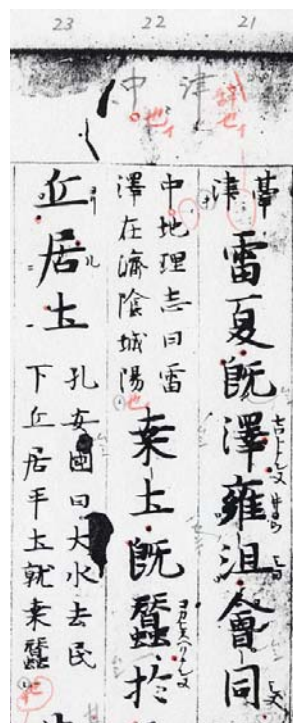 21
22
23
津
中
辭也イ
地イ
臺
津
雷夏既澤雍沮會同
中地理志曰雷
澤在濟陰城陽
桒土既蠶於
丘居土
孔安國曰大水去民
下丘居平土就桒蠶
也
也